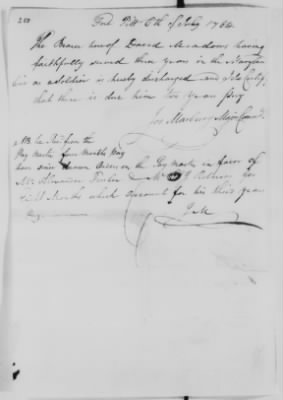 Fort Pitt 6th of July 1784
The Bearer hereof David Meadows having
faithfully served three years in the Maryland
line as a Soldier is hereby discharged and I do Certify
that there is due him Two Years Pay
Jos. Marbury Major
NB he Rec'd from the
Pay Master four Months Pay
have since drawn Orders on the Pay Master in favor of
Mr Alexander Fowler & Mr for
Eight Months which Account for his third year
Pay
J M